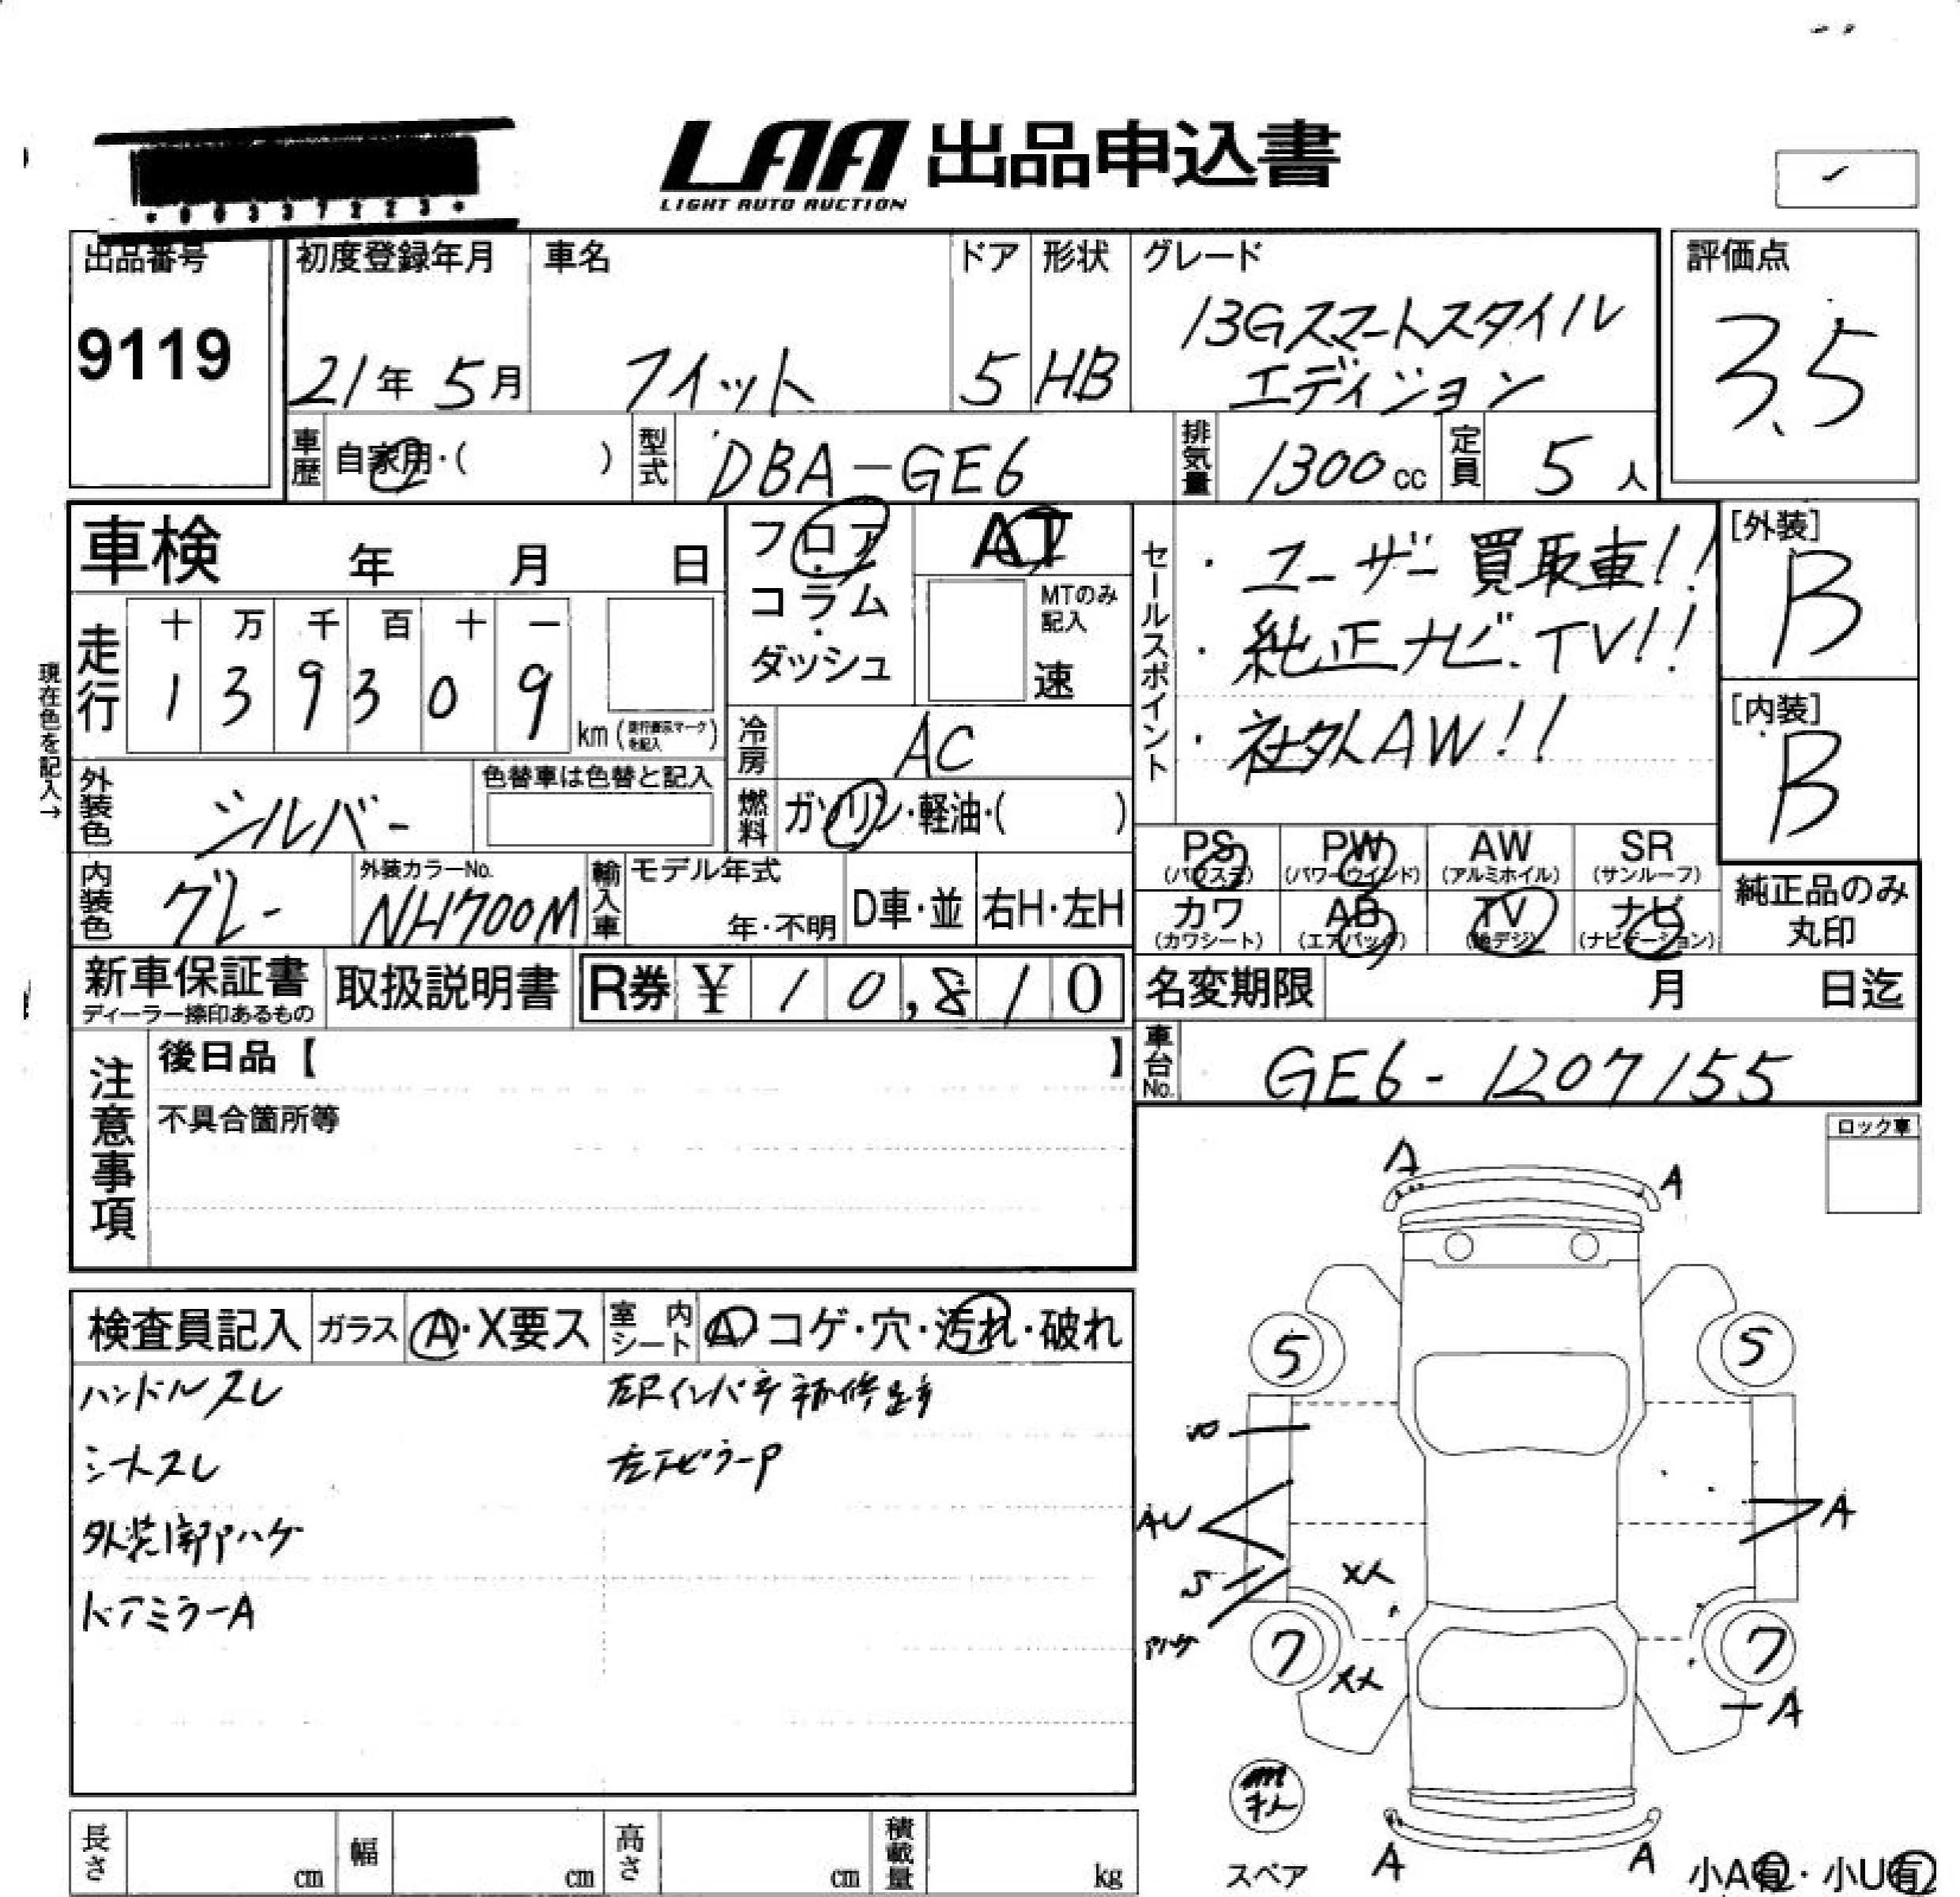 LAA 出品申込書
LIGHT AUTO AUCTION
出品番号
9119
初度登録年月
21年 5月
車名
フィット
ドア
5
形状
HB
グレード
13Gスマートスタイル
エディション
評価点
3.5
車歴
自家用・( )
型式
DBA-GE6
排気量
1300cc
定員
5人
車検 年 月 日
フロア
コラム
ダッシュ
AT
MTのみ
記入
速
セールスポイント
・ユーザー買取車!!
・純正ナビ.TV!!
・社外AW!!
[外装]
B
[内装]
B
現在色を記入→
走行
十 万 千 百 十 一
1 3 9 3 0 9
km
冷房
AC
外装色
シルバー
色替車は色替と記入
燃料
ガソリン・軽油・( )
内装色
グレー
外装カラーNo.
NH700M
輸入車
モデル年式
年・不明
D車・並
右H・左H
PS PW AW SR
(パワステ) (パワーウインド) (アルミホイル) (サンルーフ)
カワ AB TV ナビ
(カワシート) (エアバッグ) (地デジ) (ナビゲーション)
純正品のみ
丸印
新車保証書
ディーラー捺印あるもの
取扱説明書
R券 ¥ 10,810
名変期限 月 日迄
注意事項
後日品【 】
不具合箇所等
車台No.
GE6-1207155
ロック車
検査員記入
ガラス
A・X要ス
室内シート
A コゲ・穴・汚れ・破れ
ハンドルスレ
シートスレ
ドアミラーA
A A
5 5
AU
A
S
XX
7 7
XX
A
A A
スペア
小A有・小U有
長さ cm
幅 cm
高さ cm
積載量 kg